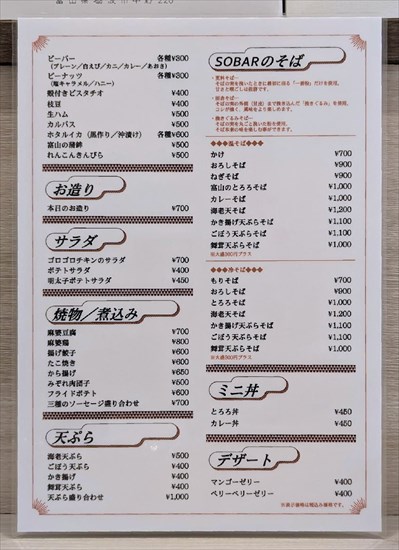 ビーバー 各種¥300
(プレーン/白えび/カニ/カレー/あおさ)
ビーナッツ 各種¥300
(塩キャラメル/ハニー)
殻付きピスタチオ ¥400
枝豆 ¥400
生ハム ¥500
カルパス ¥500
ホタルイカ (黒作り/沖漬け) 各種¥600
富山の蒲鉾 ¥500
れんこんきんぴら ¥500
お造り
本日のお造り ¥700
サラダ
ゴロゴロチキンのサラダ ¥700
ポテトサラダ ¥400
明太子ポテトサラダ ¥450
焼物/煮込み
麻婆豆腐 ¥700
麻婆鶏 ¥800
揚げ餃子 ¥600
たこ焼き ¥600
から揚げ ¥650
みぞれ肉団子 ¥500
フライドポテト ¥600
三種のソーセージ盛り合わせ ¥700
天ぷら
海老天ぷら ¥500
ごぼう天ぷら ¥400
かき揚げ ¥400
舞茸天ぷら ¥400
天ぷら盛り合わせ ¥1,000
SOBARのそば
◆◆◆温そば◆◆◆
かけ ¥700
おろしそば ¥900
ねぎそば ¥900
富山のとろろそば ¥1,000
カレーそば ¥1,000
海老天そば ¥1,200
かき揚げ天ぷらそば ¥1,100
ごぼう天ぷらそば ¥1,100
舞茸天ぷらそば ¥1,000
※大盛300円プラス
◆◆◆冷そば◆◆◆
もりそば ¥700
おろしそば ¥900
とろろそば ¥1,000
海老天そば ¥1,200
かき揚げ天ぷらそば ¥1,100
ごぼう天ぷらそば ¥1,100
舞茸天ぷらそば ¥1,000
※大盛300円プラス
ミニ丼
とろろ丼 ¥450
カレー丼 ¥450
デザート
マンゴーゼリー ¥400
ベリーベリーゼリー ¥400
※表示価格は税込み価格です。